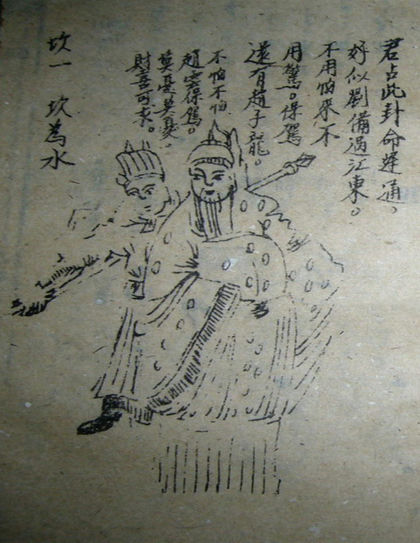 君占此卦命運通。
好似劉備過江東。
不用怕來不
用驚。保駕
還有趙子龍。
不怕不怕
趙雲保駕。
莫憂莫憂。
財喜可求。
坎一 坎為水